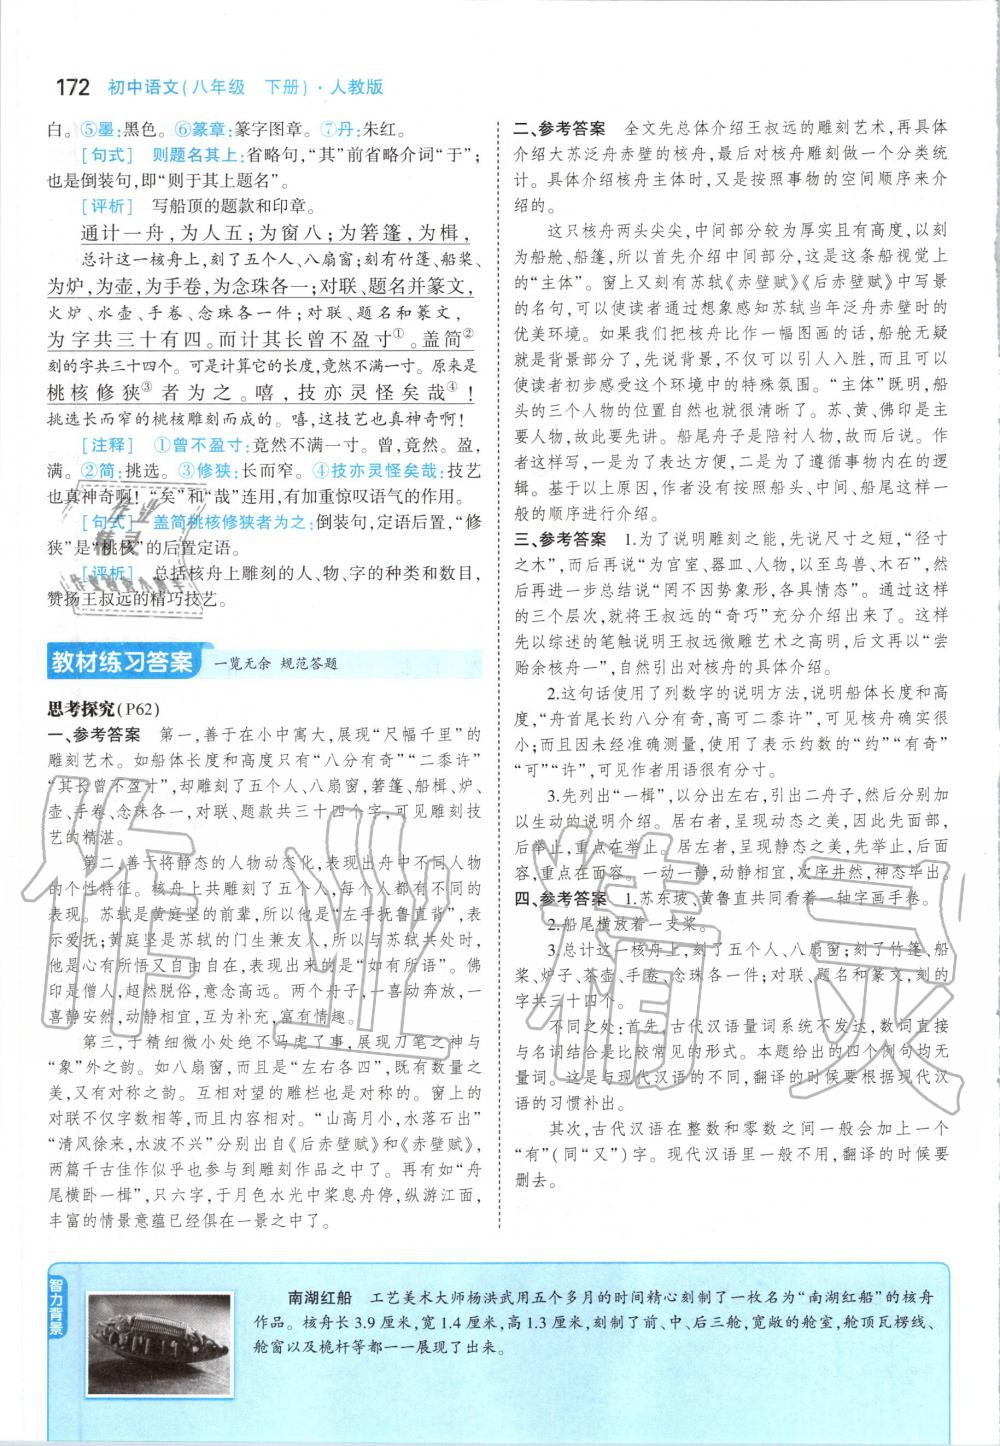 172 初中语文(八年级 下册)·人教版
白。⑤墨:黑色。⑥篆章:篆字图章。⑦丹:朱红。
[句式] 则题名其上:省略句,“其”前省略介词“于”;
也是倒装句,即“则于其上题名”。
[评析] 写船顶的题款和印章。
通计一舟,为人五;为窗八;为箬篷,为楫,
总计这一核舟上,刻了五个人、八扇窗;刻有竹篷、船桨、
为炉,为壶,为手卷,为念珠各一;对联、题名并篆文,
火炉、水壶、手卷、念珠各一件;对联、题名和篆文,
为字共三十有四。而计其长曾不盈寸①。盖简②
刻的字共三十四个。可是计算它的长度,竟然不满一寸。原来是
桃核修狭③者为之。嘻,技亦灵怪矣哉④!
挑选长而窄的桃核雕刻而成的。嘻,这技艺也真神奇啊!
[注释] ①曾不盈寸:竟然不满一寸。曾,竟然。盈,
满。②简:挑选。③修狭:长而窄。④技亦灵怪矣哉:技艺
也真神奇啊!“矣”和“哉”连用,有加重惊叹语气的作用。
[句式] 盖简桃核修狭者为之:倒装句,定语后置,“修
狭”是“桃核”的后置定语。
[评析] 总括核舟上雕刻的人、物、字的种类和数目,
赞扬王叔远的精巧技艺。
教材练习答案 一览无余 规范答题
思考探究(P62)
一、参考答案 第一,善于在小中寓大,展现“尺幅千里”的
雕刻艺术。如船体长度和高度只有“八分有奇”“二黍许”
“其长曾不盈寸”,却雕刻了五个人、八扇窗,箬篷、船楫、炉、
壶、手卷、念珠各一,对联、题款共三十四个字,可见雕刻技
艺的精湛。
第二,善于将静态的人物动态化,表现出舟中不同人物
的个性特征。核舟上共雕刻了五个人,每个人都有不同的
表现。苏轼是黄庭坚的前辈,所以他是“左手抚鲁直背”,表
示爱抚;黄庭坚是苏轼的门生兼友人,所以与苏轼共处时,
他是心有所悟又自由自在,表现得是“如有所语”。佛
印是僧人,超然脱俗,意念高远。两个舟子,一喜动奔放,一
喜静安然,动静相宜,互为补充,富有情趣。
第三,于精细微小处绝不马虎了事,展现刀笔之神与
“象”外之韵。如八扇窗,而且是“左右各四”,既有数量之
美,又有对称之韵。互相对望的雕栏也是对称的。窗上的
对联不仅字数相等,而且内容相对。“山高月小,水落石出”
“清风徐来,水波不兴”分别出自《后赤壁赋》和《赤壁赋》,
两篇千古佳作似乎也参与到雕刻作品之中了。再有如“舟
尾横卧一楫”,只六字,于月色水光中桨息舟停,纵游江面,
丰富的情景意蕴已经俱在一景之中了。
二、参考答案 全文先总体介绍王叔远的雕刻艺术,再具体
介绍大苏泛舟赤壁的核舟,最后对核舟雕刻做一个分类统
计。具体介绍核舟主体时,又是按照事物的空间顺序来介
绍的。
这只核舟两头尖尖,中间部分较为厚实且有高度,以刻
为船舱、船篷,所以首先介绍中间部分,这是这条船视觉上
的“主体”。窗上又刻有苏轼《赤壁赋》《后赤壁赋》中写景
的名句,可以使读者通过想象感知苏轼当年泛舟赤壁时的
优美环境。如果我们把核舟比作一幅图画的话,船舱无疑
就是背景部分了,先说背景,不仅可以引人入胜,而且可以
使读者初步感受这个环境中的特殊氛围。“主体”既明,船
头的三个人物的位置自然也就很清晰了。苏、黄、佛印是主
要人物,故此要先讲。船尾舟子是陪衬人物,故而后说。作
者这样写,一是为了表达方便,二是为了遵循事物内在的逻
辑。基于以上原因,作者没有按照船头、中间、船尾这样一
般的顺序进行介绍。
三、参考答案 1.为了说明雕刻之能,先说尺寸之短,“径寸
之木”,而后再说“为宫室、器皿、人物,以至鸟兽、木石”,然
后再进一步总结说“罔不因势象形,各具情态”。通过这样
的三个层次,就将王叔远的“奇巧”充分介绍出来了。这样
先以综述的笔触说明王叔远微雕艺术之高明,后文再以“尝
贻余核舟一”,自然引出对核舟的具体介绍。
2.这句话使用了列数字的说明方法,说明船体长度和高
度,“舟首尾长约八分有奇,高可二黍许”,可见核舟确实很
小;而且因未经准确测量,使用了表示约数的“约”“有奇”
“可”“许”,可见作者用语很有分寸。
3.先列出“一楫”,以分出左右,引出二舟子,然后分别加
以生动的说明介绍。居右者,呈现动态之美,因此先面部,
后举止,重点在举止。居左者,呈现静态之美,先举止,后面
容,重点在面容。一动一静,动静相宜,次序井然,神态毕出。
四、参考答案 1.苏东坡、黄鲁直共同看着一轴字画手卷。
2.船尾横放着一支桨。
3.总计这一核舟上,刻了五个人、八扇窗;刻了竹篷、船
桨、炉子、茶壶、手卷、念珠各一件;对联、题名和篆文,刻的
字共三十四个。
不同之处:首先,古代汉语量词系统不发达,数词直接
与名词结合是比较常见的形式。本题给出的四个例句均无
量词。这是与现代汉语的不同,翻译的时候要根据现代汉
语的习惯补出。
其次,古代汉语在整数和零数之间一般会加上一个
“有”(同“又”)字。现代汉语里一般不用,翻译的时候要
删去。
智力背景
南湖红船 工艺美术大师杨洪武用五个多月的时间精心刻制了一枚名为“南湖红船”的核舟
作品。核舟长 3.9 厘米,宽 1.4 厘米,高 1.3 厘米,刻制了前、中、后三舱,宽敞的舱室,舱顶瓦楞线、
舱窗以及桅杆等都一一展现了出来。
作业精灵